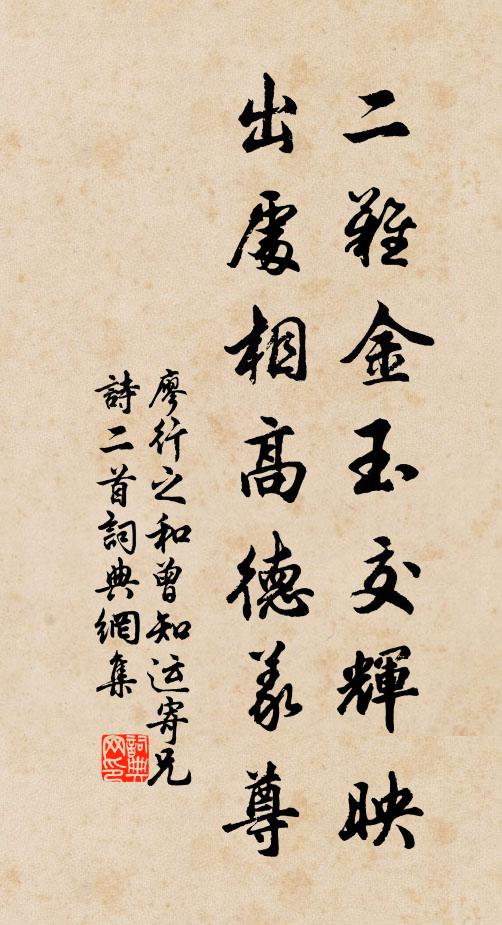 二難金玉交輝映
出處相高德義尊
廖行之和曾知运寄兄
詩二首詞典網集
詞典网印